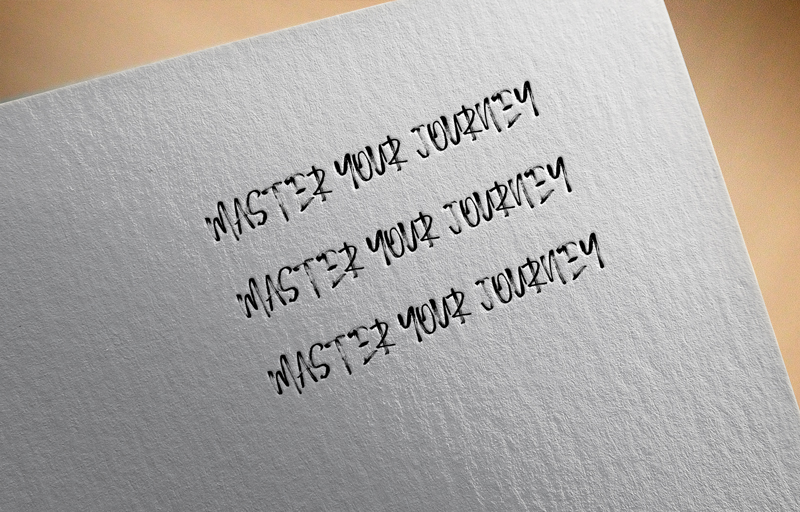 MASTER YOUR JOURNEY
MASTER YOUR JOURNEY
MASTER YOUR JOURNEY